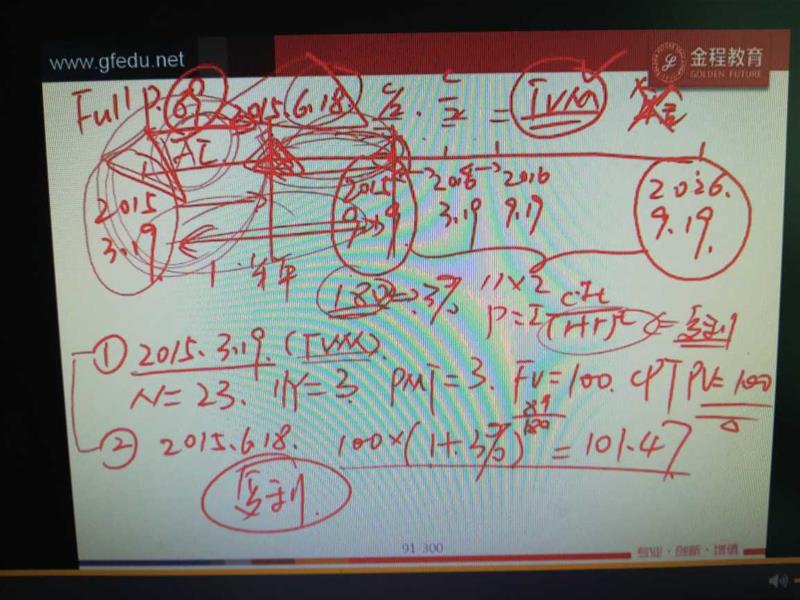 www.gfedu.net
金程教育
GOLDEN FUTURE
Full P. 2015.6.18. C/2 . C/2 = TVM
AI
2015 3.19
2015 9.19
2016 3.19
2016 9.19
2026. 9.19.
半年
180 => 3% 11×2
P=Σ CFt/(1+r)^t <= 复利
① 2015.3.19. (TVM).
N=23. I/Y=3. PMT=3. FV=100. CPT PV=100
② 2015.6.18. 100×(1+3%)^89/180 = 101.47
复利
91-300
专业·创新·增值